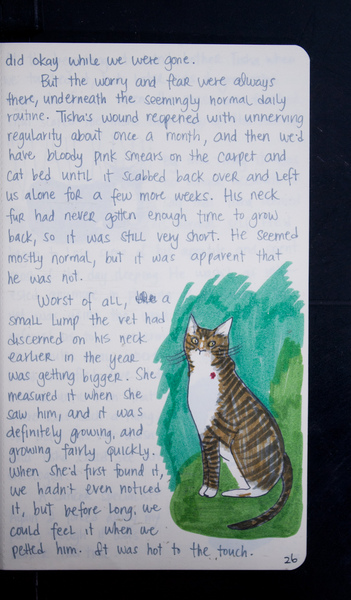 did okay while we were gone.
But the worry and fear were always
there, underneath the seemingly normal daily
routine. Tisha's wound reopened with unnerving
regularity about once a month, and then we'd
have bloody pink smears on the carpet and
cat bed until it scabbed back over and left
us alone for a few more weeks. His neck
fur had never gotten enough time to grow
back, so it was still very short. He seemed
mostly normal, but it was apparent that
he was not.
Worst of all, a
small lump the vet had
discerned on his neck
earlier in the year
was getting bigger. She
measured it when she
saw him, and it was
definitely growing, and
growing fairly quickly.
When she'd first found it,
we hadn't even noticed
it, but before long, we
could feel it when we
petted him. It was hot to the touch.
26